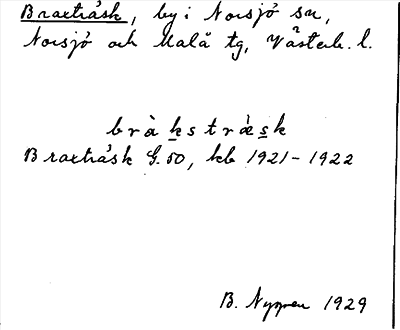 Braxträsk, by i Norsjö sn,
Norsjö och Malå tg, Västerb. l.
bràkstrǽsk
Braxträsk G.50, kb 1921-1922
B. Nygren 1929